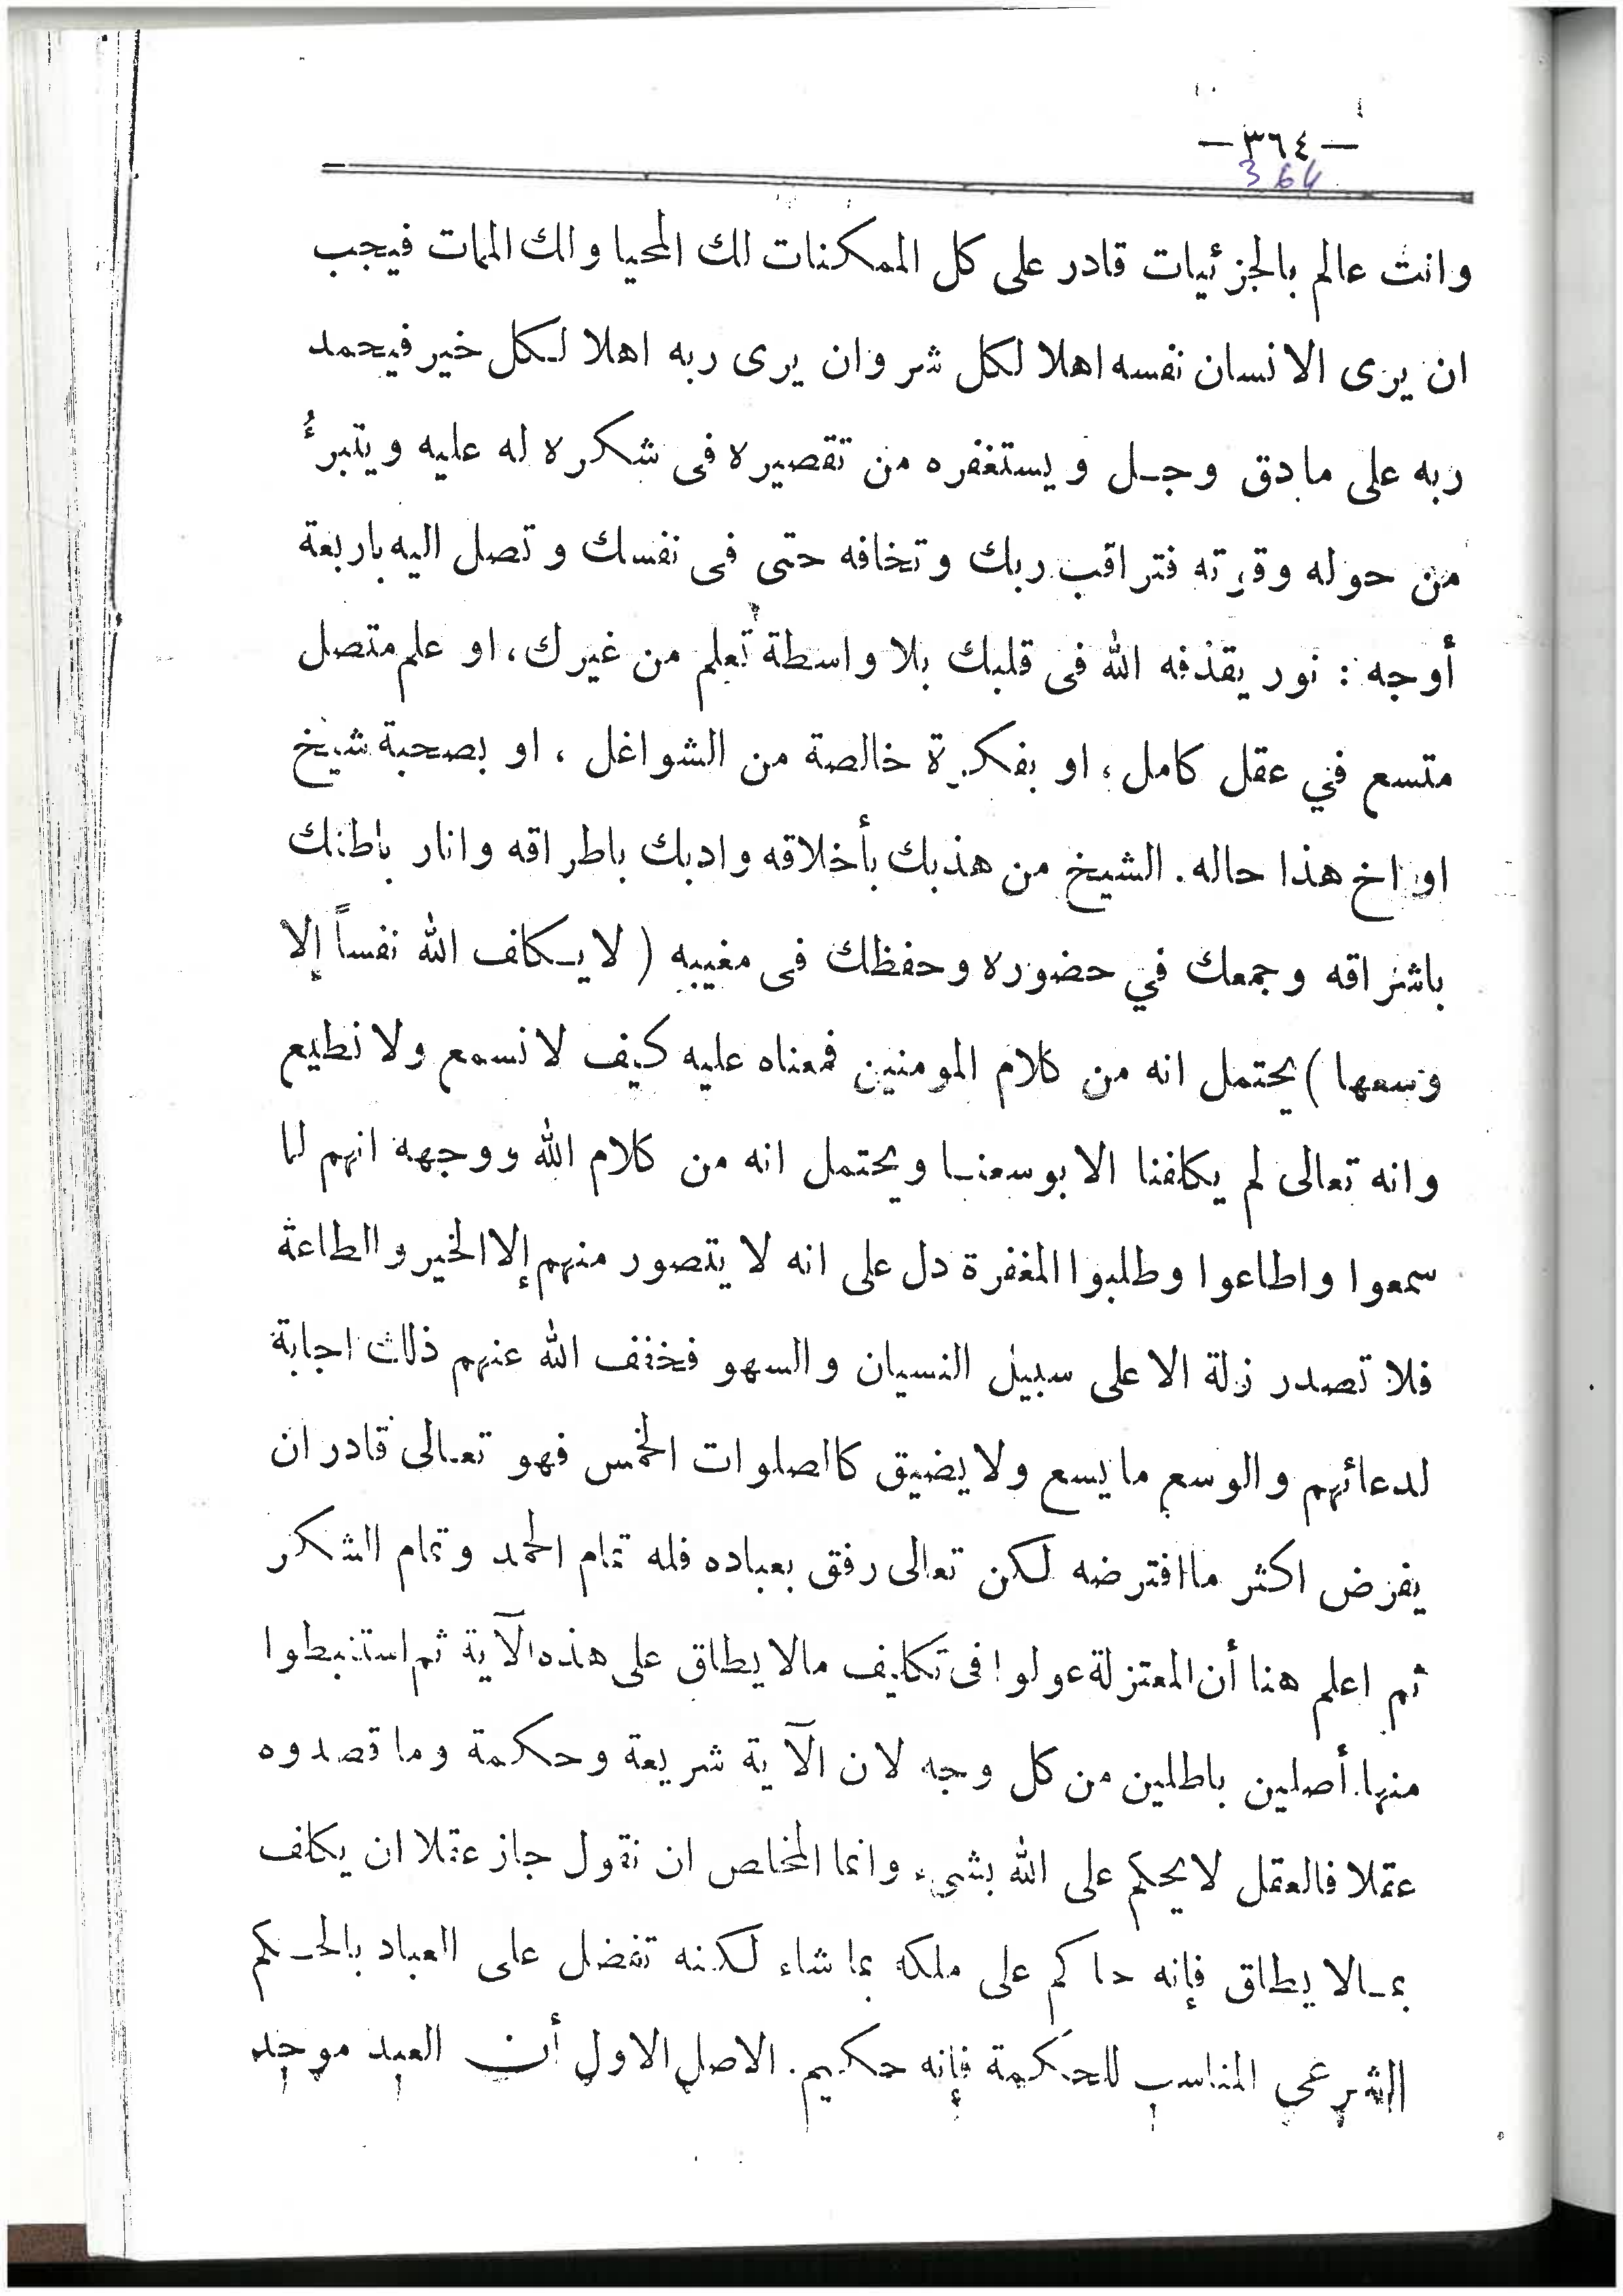 — ٣٦٤ —
364
وانت عالم بالجزئيات قادر على كل الممكنات لك المحيا ولك الممات فيجب
ان يرى الانسان نفسه اهلا لكل شر وان يرى ربه اهلا لكل خير فيحمد
ربه على مادق وجل ويستغفره من تقصيره فى شكره له عليه ويتبرءُ
من حوله وقوته فتراقب ربك وتخافه حتى فى نفسك وتصل اليه باربعة
أوجه : نور يقذفه الله فى قلبك بلا واسطة تعلم من غيرك، او علم متصل
متسع في عقل كامل، او بفكرة خالصة من الشواغل ، او بصحبة شيخ
او اخ هذا حاله. الشيخ من هذبك بأخلاقه وادبك باطراقه وانار باطنك
باشراقه وجمعك في حضوره وحفظك فى مغيبه ( لا يكلف الله نفساً إلا
وسعها ) يحتمل انه من كلام المومنين فمعناه عليه كيف لا نسمع ولا نطيع
وانه تعالى لم يكلفنا الا بوسعنا ويحتمل انه من كلام الله ووجهه انهم لما
سمعوا واطاعوا وطلبوا المغفرة دل على انه لا يتصور منهم إلا الخير والطاعة
فلا تصدر زلة الا على سبيل النسيان والسهو فخفف الله عنهم ذلك اجابة
لدعائهم والوسع ما يسع ولا يضيق كالصلوات الخمس فهو تعالى قادر ان
يفرض اكثر مما افترضه لكن تعالى رفق بعباده فله تمام الحمد وتمام الشكر
ثم اعلم هنا أن المعتزلة عولوا فى تكليف مالا يطاق على هذه الآية ثم استنبطوا
منها أصلين باطلين من كل وجه لان الآية شريعة وحكمة وما قصدوه
عقلا فالعقل لا يحكم على الله بشىء وانما المخلص ان نقول جاز عقلا ان يكلف
بمالا يطاق فإنه حاكم على ملكه بما شاء لكنه تفضل على العباد بالحكم
الشرعي المناسب للحكمة فإنه حكيم. الاصل الاول أن العبد موجد